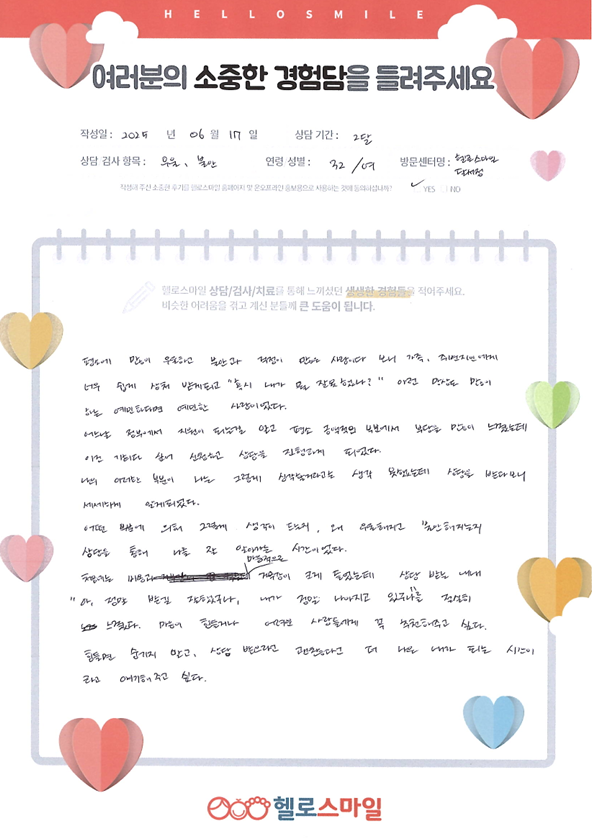 HELLOSMILE
여러분의 소중한 경험담을 들려주세요
작성일 : 2025 년 06 월 17 일 상담 기간 : 2달
상담 검사 항목 : 우울, 불안 연령 성별 : 32 / 여 방문센터명 : 헬로스마일
작성해 주신 소중한 후기를 헬로스마일 홈페이지 및 온오프라인 홍보용으로 사용하는 것에 동의하십니까? ✓ YES NO
헬로스마일 상담/검사/치료를 통해 느끼셨던 생생한 경험들을 적어주세요.
비슷한 어려움을 겪고 계신 분들께 큰 도움이 됩니다.
평소에 많이 우울하고 불안과 걱정이 많은 사람이다 보니 가족, 주변지인에게
너무 쉽게 상처 받게되고 "혹시 내가 뭘 잘못했나?" 이런 망상도 많이
하는 예민하다면 예민한 사람이었다.
어느날 정부에서 지원이 되는걸 알고 평소 금액적인 부분에서 부담을 많이 느꼈는데
이건 기회다 싶어 신청하고 상담을 진행하게 되었다.
나의 이러한 부분이 나는 그렇게 심각하다고는 생각 못했는데 상담을 받다보니
세세하게 알게되었다.
어떤 부분에 의해 그렇게 생각이 드는지, 왜 우울해지고 불안해지는지
상담을 통해 나를 잘 알아가는 시간이었다.
처음에는 비용과 마음적으로 걱정이 크게 들었는데 상담 받는 내내
"아, 정말 받길 잘했구나, 내가 정말 나아지고 있구나"를 절실히
느꼈다. 마음이 힘들거나 어려운 사람들에게 꼭 추천해주고 싶다.
힘들면 숨기지 말고, 상담 받으라고 괜찮다고 더 나은 내가 되는 시간이
라고 얘기해 주고 싶다.
헬로스마일